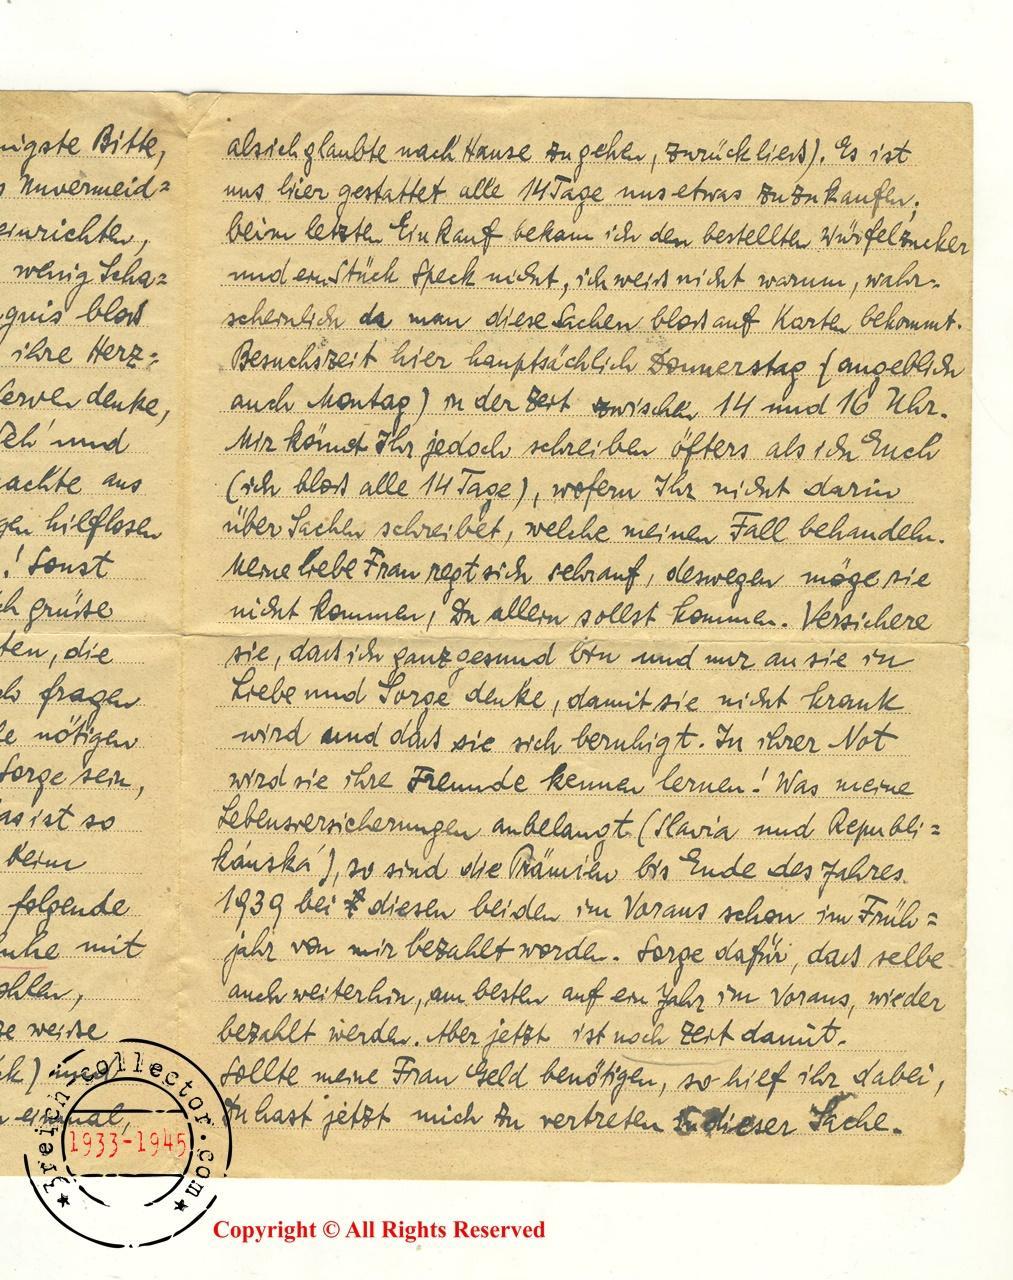 nigste Bitte,
s Unvermeid=
einrichten,
wenig Scha=
gnis bloß
ihre Herz=
erven denke,
Weh' und
machte aus
gen hilflosen
! Sonst
ch grüße
ten, die
fragen
le nötigen
Sorge sein,
das ist so
beim
folgende
uhe mit
ohlen,
ze weiße
ck)
einmal,
als ich glaubte nach Hause zu gehen, zurückließ). Es ist
uns hier gestattet alle 14 Tage uns etwas zuzukaufen;
beim letzten Einkauf bekam ich den bestellten Würfelzucker
und ein Stück Speck nicht, ich weiß nicht warum, wahr=
scheinlich da man diese Sachen bloß auf Karten bekommt.
Besuchszeit hier hauptsächlich Donnerstag (angeblich
auch Montag) in der Zeit zwischen 14 und 16 Uhr.
Mir könnt Ihr jedoch schreiben öfters als ich Euch
(ich bloß alle 14 Tage), wofern Ihr nicht darin
über Sachen schreibet, welche meinen Fall behandeln.
Meine liebe Frau regt sich sehr auf, deswegen möge sie
nicht kommen, Du allein sollst kommen. Versichere
sie, daß ich ganz gesund bin und nur an sie in
Liebe und Sorge denke, damit sie nicht krank
wird und daß sie sich beruhigt. In ihrer Not
wird sie ihre Freunde kennen lernen! Was meine
Lebensversicherungen anbelangt (Slavia und Republi=
kánská), so sind die Prämien bis Ende des Jahres
1939 bei diesen beiden im Voraus schon im Früh=
jahr von mir bezahlt worden. Sorge dafür, daß selbe
auch weiterhin, am besten auf ein Jahr im Voraus, wieder
bezahlt werden. Aber jetzt ist noch Zeit damit.
Sollte meine Frau Geld benötigen, so hilf ihr dabei,
Du hast jetzt mich zu vertreten in dieser Sache.
3reichcollector.com
1933-1945
Copyright © All Rights Reserved